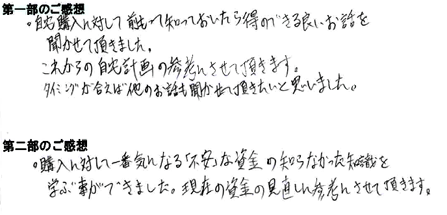 第一部のご感想
。自宅購入に対して前もって知っておいたら得のできる良いお話を
聞かせて頂きました。
これからの自宅計画の参考にさせて頂きます。
タイミングが合えば他のお話も聞かせて頂きたいと思いました。
第二部のご感想
。購入に対して一番気になる「不安」な資金の知らなかった知識を
学ぶ事ができました。現在の資金の見通しの参考にさせて頂きます。